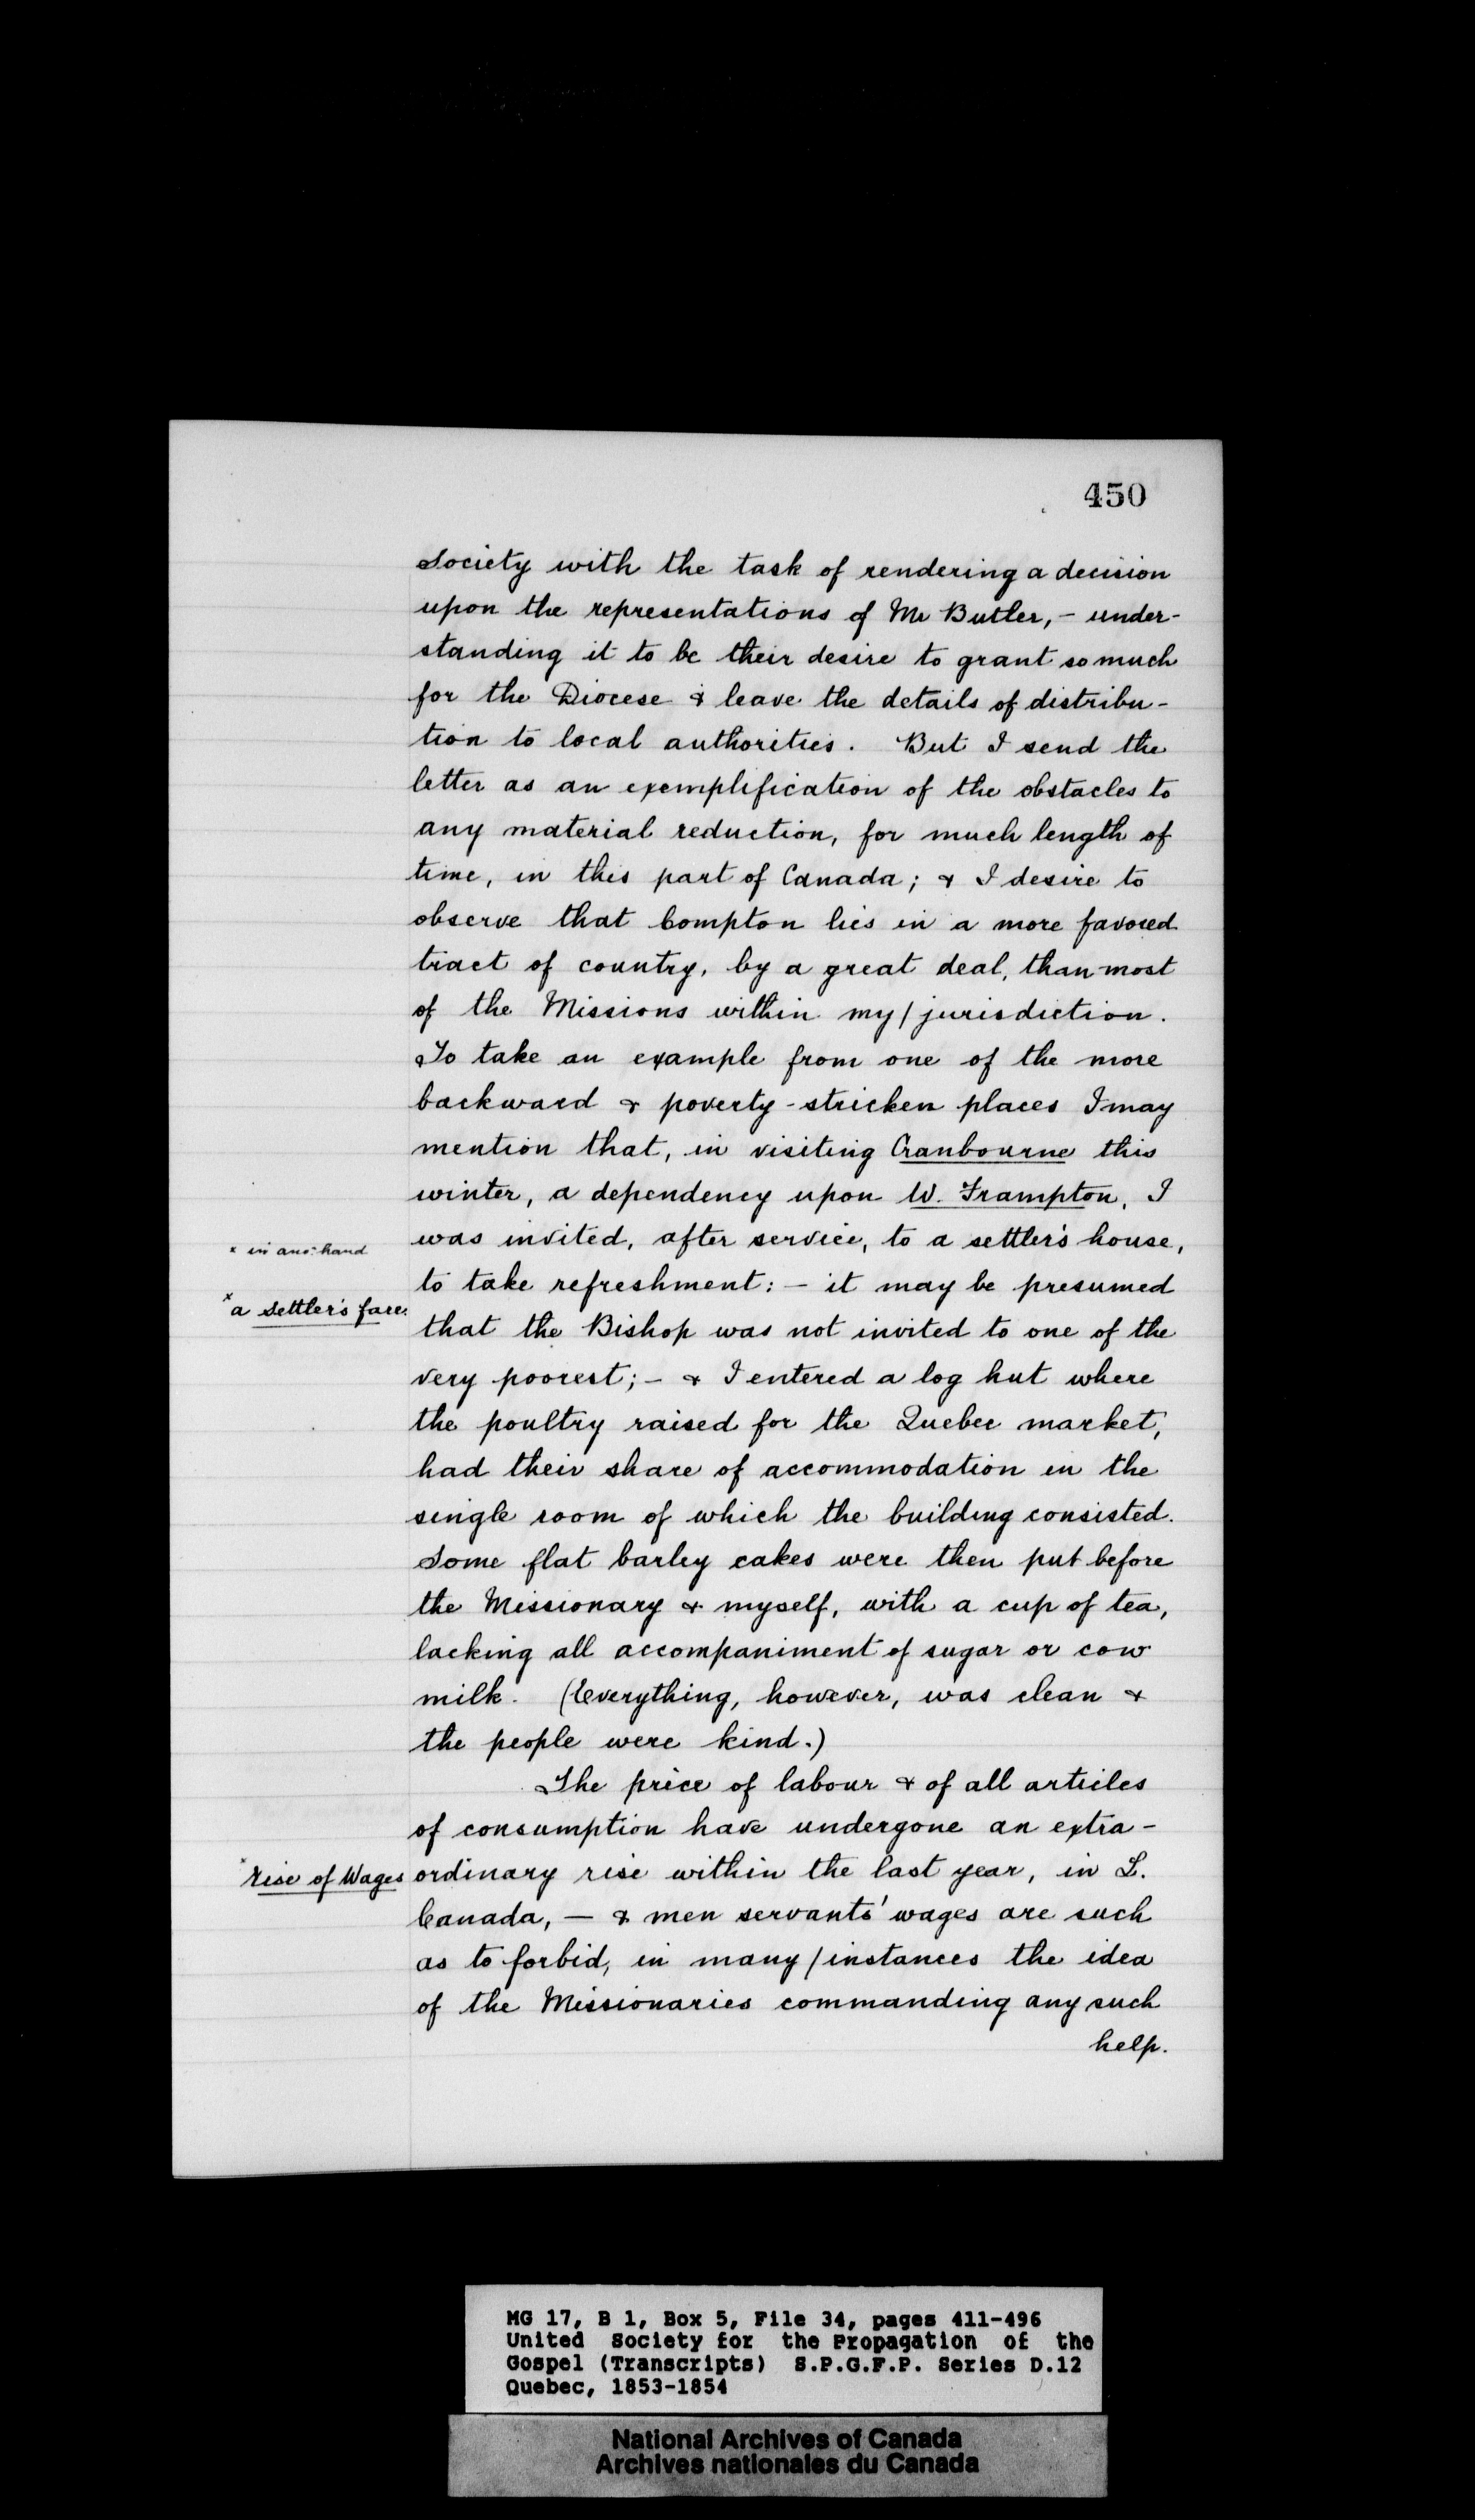 450
Society with the task of rendering a decision
upon the representations of Mr Butler, – under-
standing it to be their desire to grant so much
for the Diocese & leave the details of distribu-
tion to local authorities. But I send the
letter as an exemplification of the obstacles to
any material reduction, for much length of
time, in this part of Canada; & I desire to
observe that Compton lies in a more favored
tract of country, by a great deal, than most
of the Missions within my / jurisdiction.
To take an example from one of the more
backward & poverty-stricken places I may
mention that, in visiting Cranbourne this
winter, a dependency upon W. Frampton, I
was invited, after service, to a settler's house,
x in ano: hand
to take refreshment: – it may be presumed
x a settler's fare.
that the Bishop was not invited to one of the
very poorest; – & I entered a log hut where
the poultry raised for the Quebec market,
had their share of accommodation in the
single room of which the building consisted.
Some flat barley cakes were then put before
the Missionary & myself, with a cup of tea,
lacking all accompaniment of sugar or cow
milk. (Everything, however, was clean &
the people were kind.)
The price of labour & of all articles
of consumption have undergone an extra-
x rise of Wages
ordinary rise within the last year, in L.
Canada, — & men servants' wages are such
as to forbid, in many / instances the idea
of the Missionaries commanding any such
help.
MG 17, B 1, Box 5, File 34, pages 411-496
United Society for the Propagation of the
Gospel (Transcripts) S.P.G.F.P. Series D.12
Quebec, 1853-1854
National Archives of Canada
Archives nationales du Canada